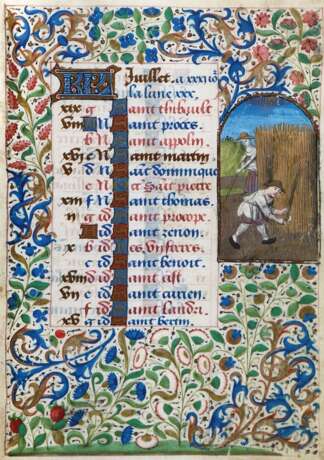 KL Juillet. a xxxi io'
la lune xxx.
xix g saint thibault
viii A N saint proces
b N saint appolin
xvi c N saint martin
v d N saīt dominique
e N s Saīt pierre
xiii f N saint thomas
g id saint procope
id saint zenon
b id les Vii freres
c id saint benoit
xviii d id saint
vii e id saint turien
f id saint landri
xv g id saint bertin